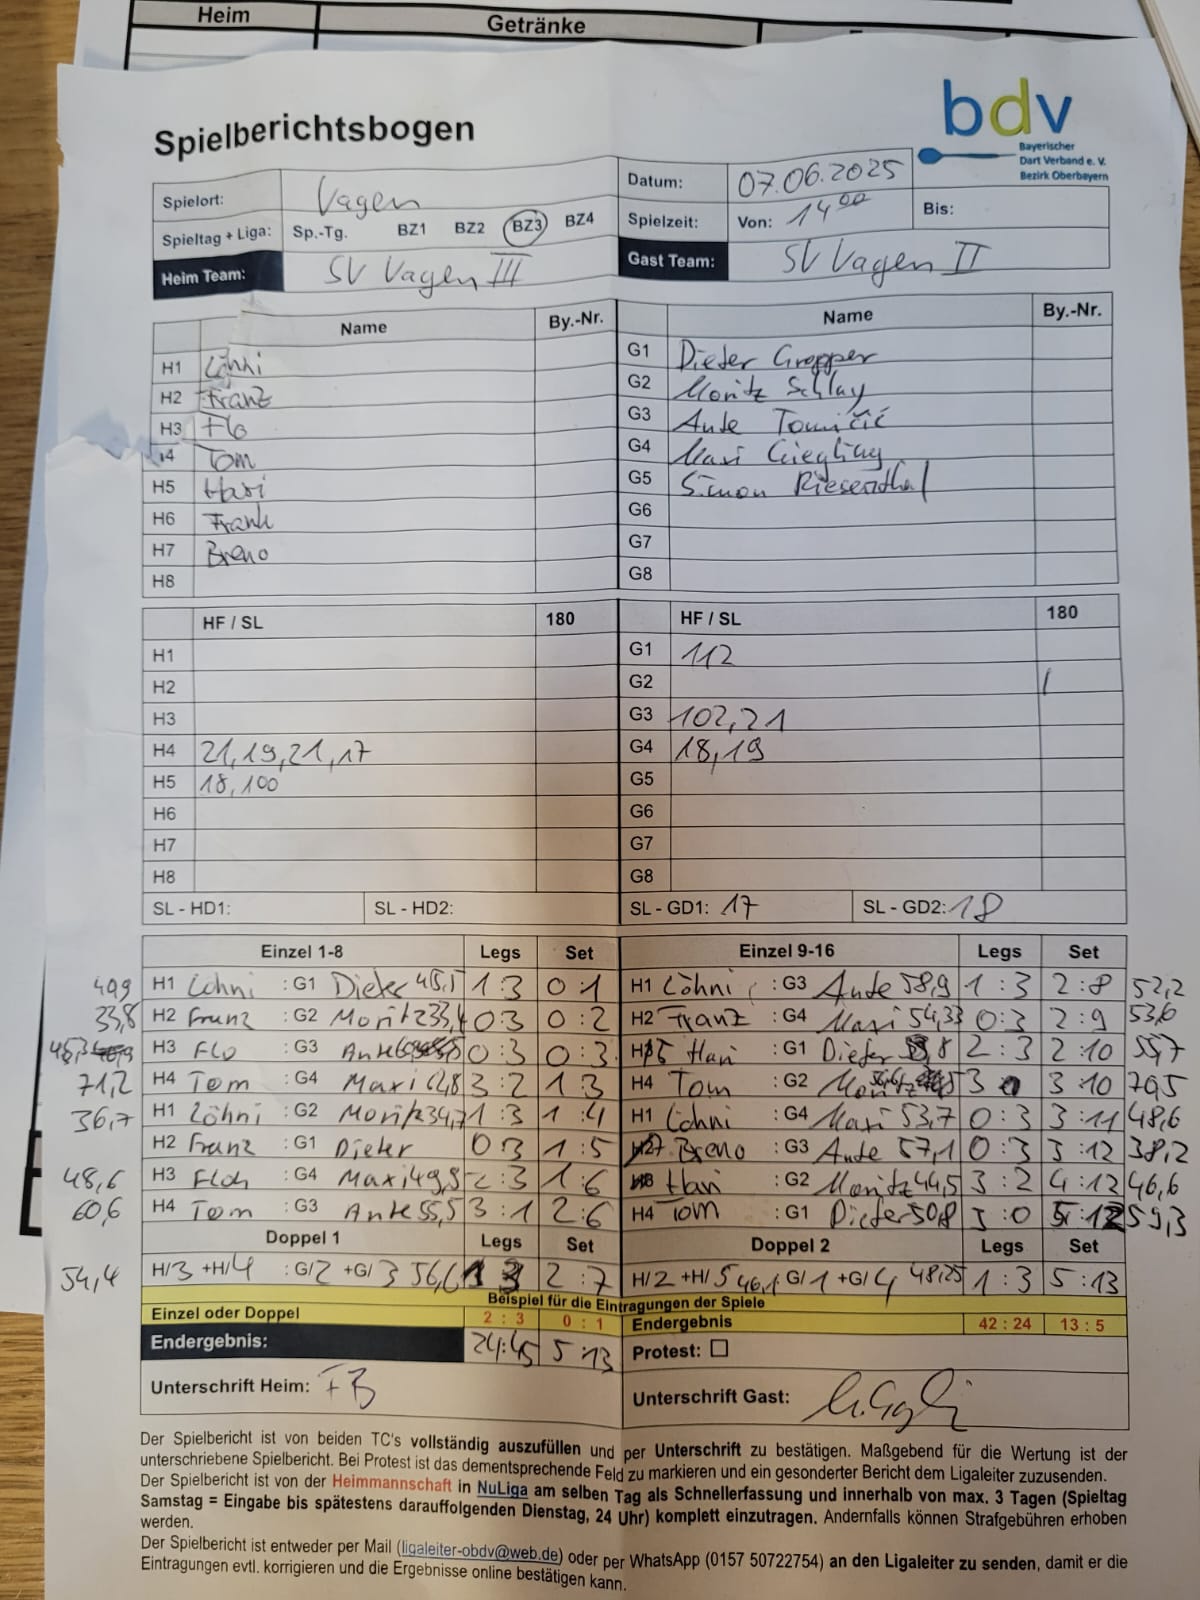 Heim Getränke
Spielberichtsbogen
bdv
Bayerischer
Dart Verband e. V.
Bezirk Oberbayern
Spielort: Vagen
Datum: 07.06.2025
Spieltag + Liga: Sp.-Tg. BZ1 BZ2 BZ3 BZ4
Spielzeit: Von: 14 00 Bis:
Heim Team: SV Vagen III
Gast Team: SV Vagen II
Name By.-Nr. Name By.-Nr.
H1 Löhni G1 Dieter Gropper
H2 Franz G2 Moritz Schlay
H3 Flo G3 Ante Tomičić
H4 Tom G4 Maxi Giegling
H5 Hari G5 Simon Riesenthal
H6 Frank G6
H7 Breno G7
H8 G8
HF / SL 180 HF / SL 180
H1 G1 112
H2 G2 /
H3 G3 102,21
H4 21,19,21,17 G4 18,19
H5 18,100 G5
H6 G6
H7 G7
H8 G8
SL - HD1: SL - HD2: SL - GD1: 17 SL - GD2: 18
Einzel 1-8 Legs Set Einzel 9-16 Legs Set
H1 Löhni : G1 Dieter 45,1 1:3 0:1 H1 Löhni : G3 Ante 58,9 1:3 2:8 52,2
33,8 H2 Franz : G2 Moritz 33,4 0:3 0:2 H2 Franz : G4 Maxi 54,33 0:3 2:9 53,6
H3 Flo : G3 Ante 0:3 0:3 H5 Hari : G1 Dieter 2:3 2:10 55,7
71,2 H4 Tom : G4 Maxi 3:2 1:3 H4 Tom : G2 Moritz 3 0 3:10 79,5
36,7 H1 Löhni : G2 Moritz 34,7 1:3 1:4 H1 Löhni : G4 Maxi 53,7 0:3 3:11 48,6
H2 Franz : G1 Dieter 0:3 1:5 Breno : G3 Ante 57,1 0:3 3:12 38,2
48,6 H3 Floh : G4 Maxi 49,8 2:3 1:6 Hari : G2 Moritz 44,5 3:2 4:12 46,6
60,6 H4 Tom : G3 Ante 55,5 3:1 2:6 H4 Tom : G1 Dieter 50,8 3:0 5:12 59,3
Doppel 1 Legs Set Doppel 2 Legs Set
54,4 H/3 +H/4 : G/2 +G/3 56,6 1 3 2:7 H/2 +H/5 46,1 : G/1 +G/4 48,25 1:3 5:13
Beispiel für die Eintragungen der Spiele
Einzel oder Doppel 2 : 3 0 : 1 Endergebnis 42 : 24 13 : 5
Endergebnis: 24:45 5:13 Protest:
Unterschrift Heim: FB Unterschrift Gast:
Der Spielbericht ist von beiden TC's vollständig auszufüllen und per Unterschrift zu bestätigen. Maßgebend für die Wertung ist der
unterschriebene Spielbericht. Bei Protest ist das dementsprechende Feld zu markieren und ein gesonderter Bericht dem Ligaleiter zuzusenden.
Der Spielbericht ist von der Heimmannschaft in NuLiga am selben Tag als Schnellerfassung und innerhalb von max. 3 Tagen (Spieltag
Samstag = Eingabe bis spätestens darauffolgenden Dienstag, 24 Uhr) komplett einzutragen. Andernfalls können Strafgebühren erhoben
werden.
Der Spielbericht ist entweder per Mail (ligaleiter-obdv@web.de) oder per WhatsApp (0157 50722754) an den Ligaleiter zu senden, damit er die
Eintragungen evtl. korrigieren und die Ergebnisse online bestätigen kann.